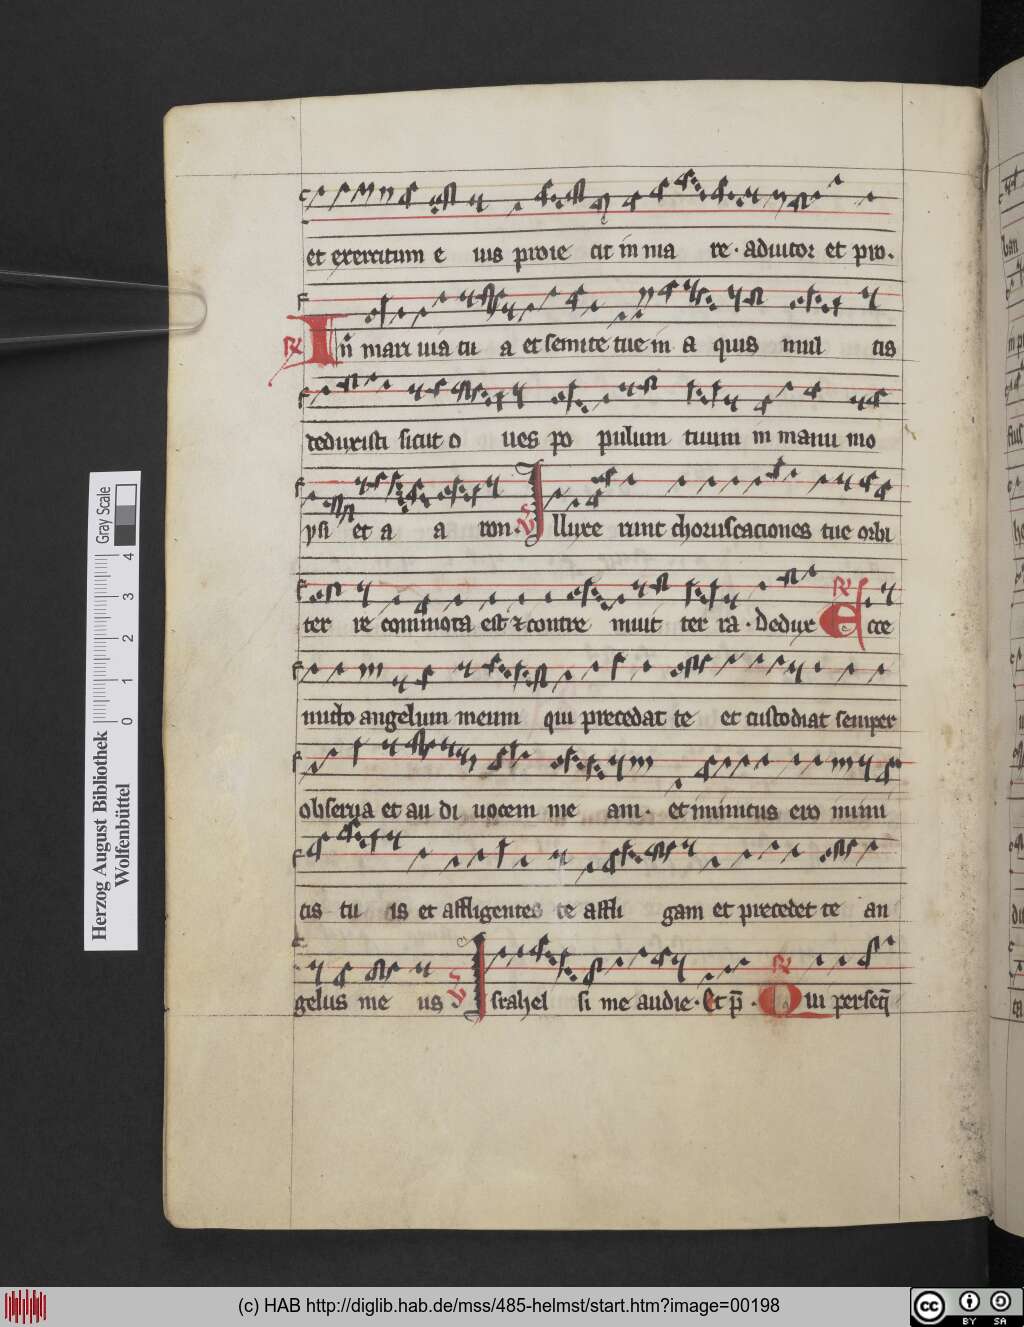 et exercitum e ius proie cit in ma re · adiutor et pro.
R In mari via tu a et semite tue in a quis mul tis
deduxisti sicut o ves po pulum tuum in manu mo
ysi et a a ron. V Illuxe runt choruscaciones tue orbi
ter re commota est et contre muit ter ra · Deduxe R Ecce
mitto angelum meum qui precedat te et custodiat semper
observa et au di vocem me am · et inimicus ero inimi
cis tu is et affligentes te affli gam et precedet te an
gelus me us V Israhel si me audie · Et p̄ · R Qui perseq̄
Gray Scale
0 1 2 3 4
Herzog August Bibliothek
Wolfenbüttel
(c) HAB http://diglib.hab.de/mss/485-helmst/start.htm?image=00198
cc BY SA